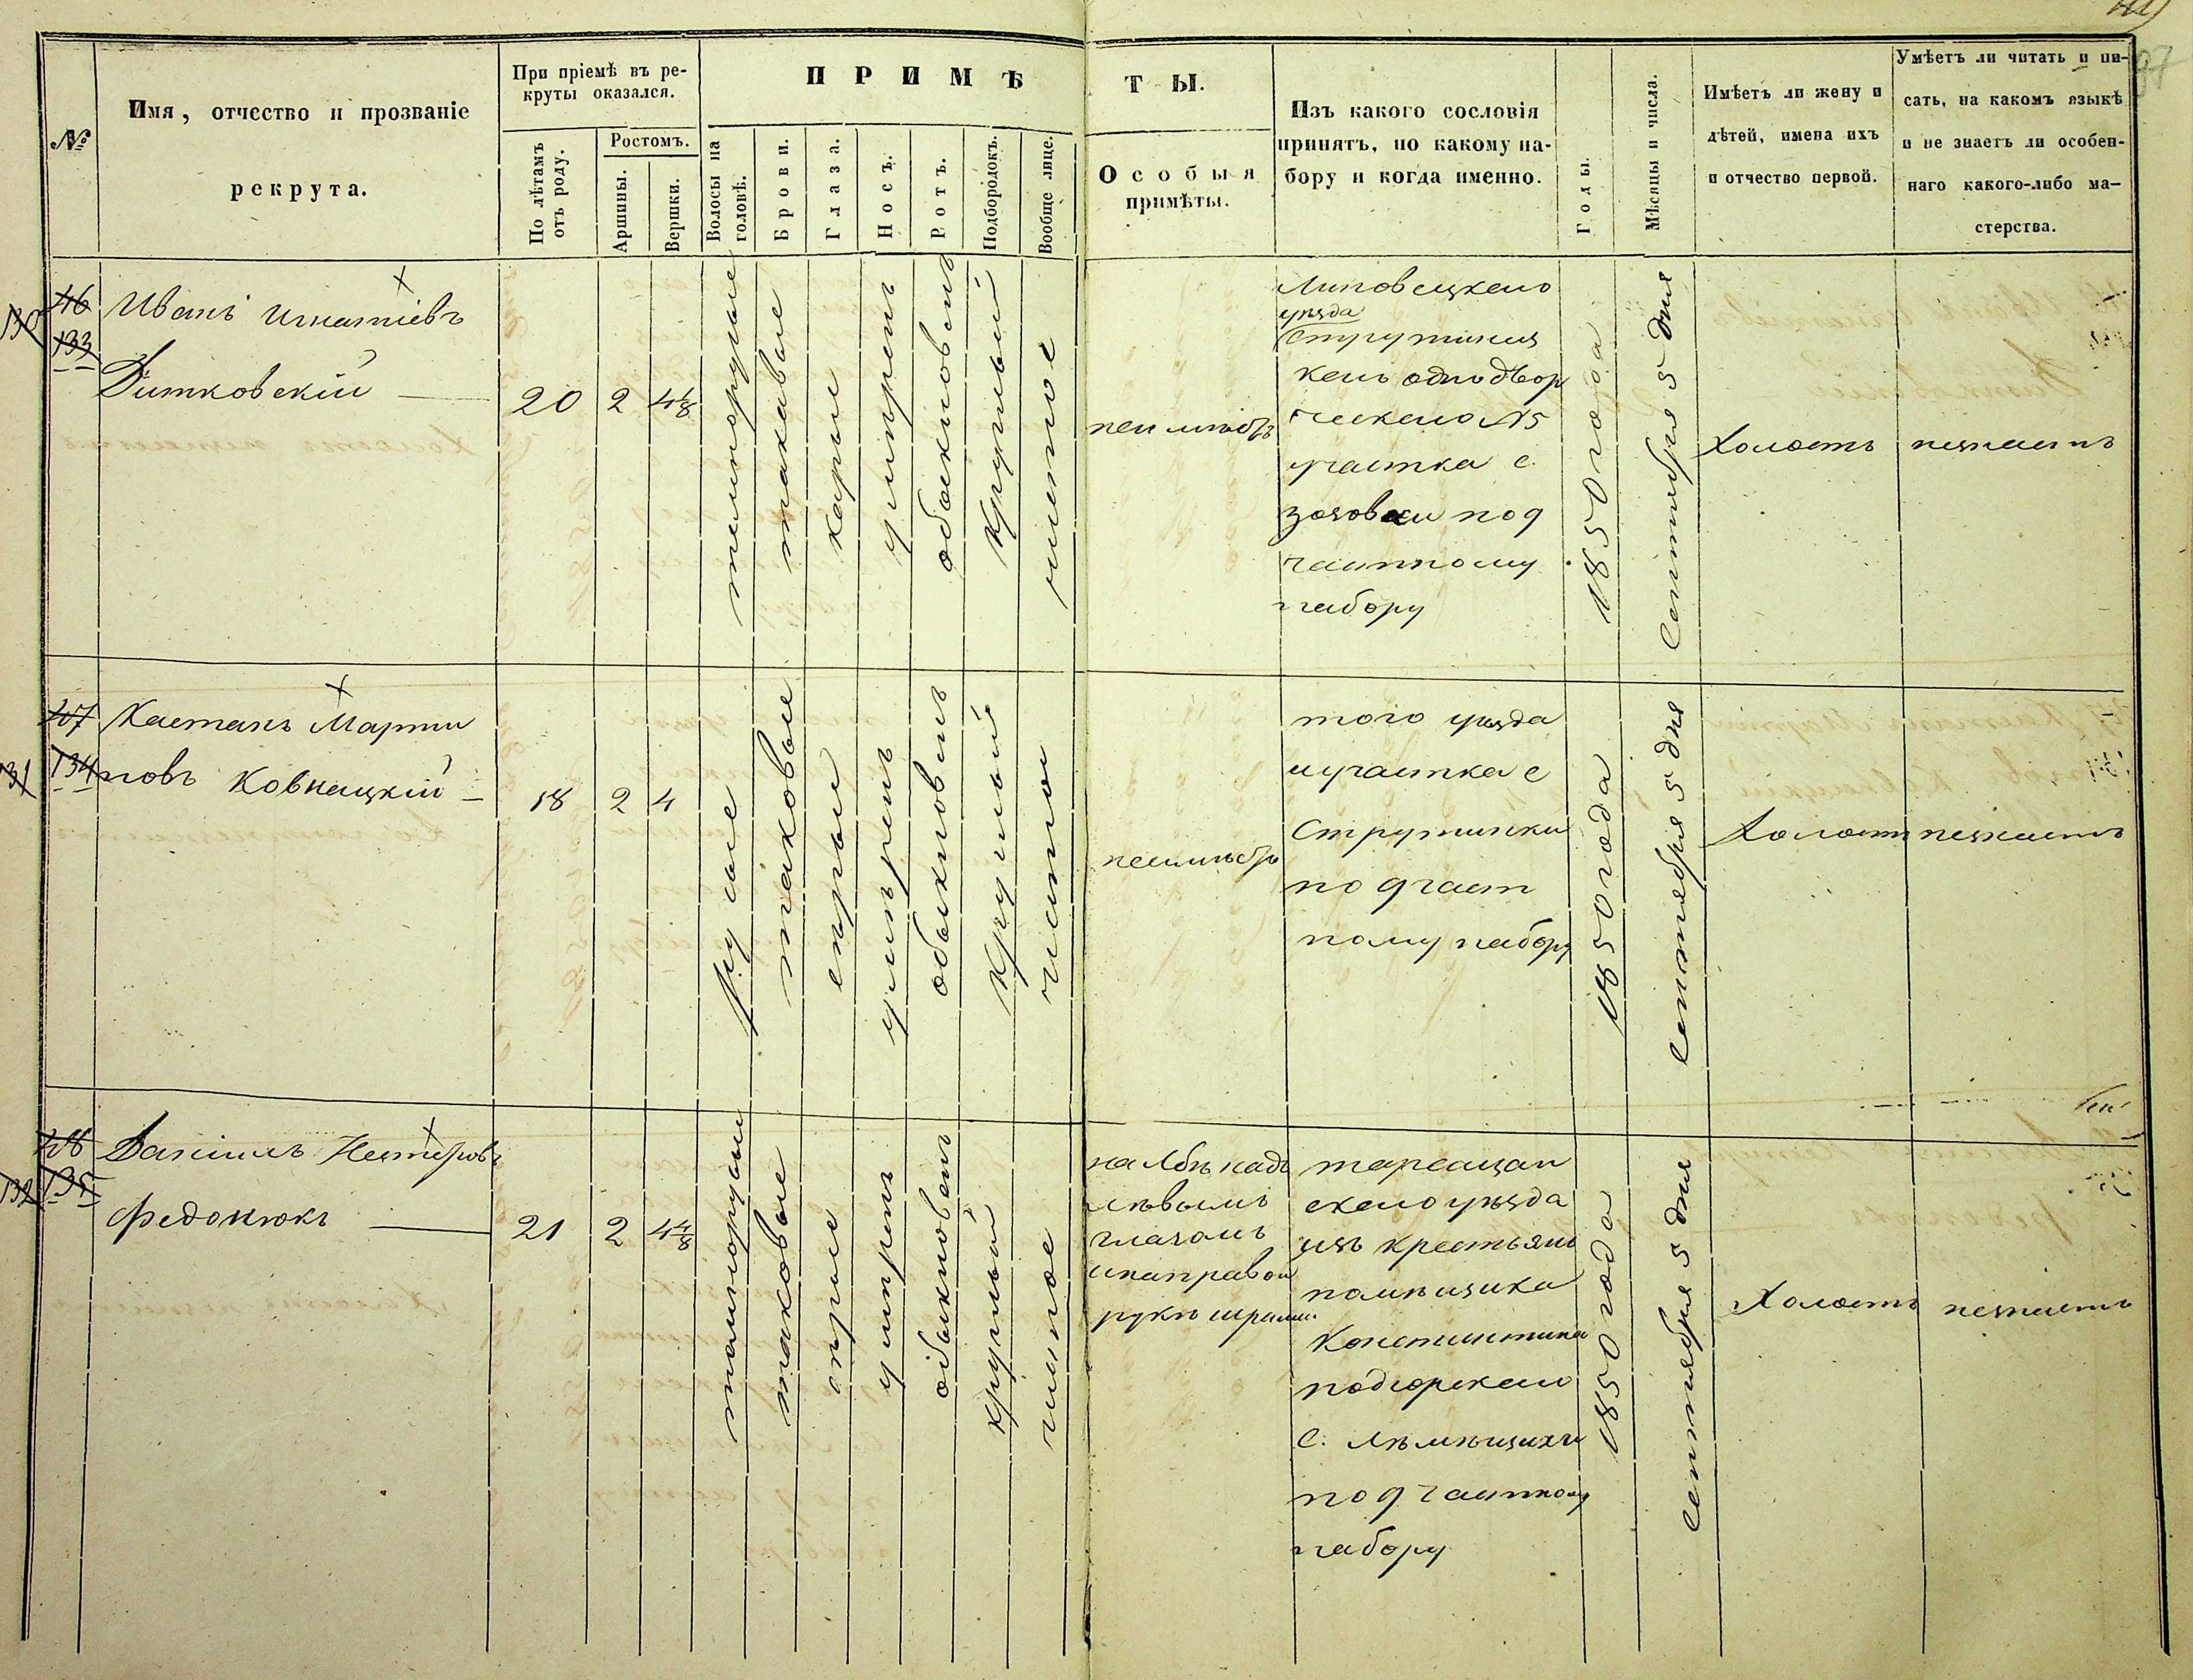 №
Имя, отчество и прозваніе
рекрута.
При пріемѣ въ ре-
круты оказался.
По лѣтамъ
отъ роду.
Ростомъ.
Аршины.
Вершки.
ПРИМѢ
ТЫ.
Волосы на
головѣ.
Брови.
Глаза.
Носъ.
Ротъ.
Подбородокъ.
Вообще лице.
Особыя
примѣты.
Изъ какого сословія
принятъ, по какому на-
бору и когда именно.
Годы.
Мѣсяцы и числа.
Имѣетъ ли жену и
дѣтей, имена ихъ
и отчество первой.
Умѣетъ ли читать и пи-
сать, на какомъ языкѣ
и не знаетъ ли особен-
наго какого-либо ма-
стерства.
133
Иванъ Игнатіевъ
Дитковскій
20
2
4 1/8
темнорусые
таковые
карые
умѣренъ
обыкновенъ
круглый
чистое
неимѣетъ
Липовецкого
уѣзда
Струтинец
кого однодвор
ческого №5
участка с.
зозовки под
частному
набору
1850 года
Сентября 5 дня
Холостъ
незнаетъ
131
134
Каетанъ Марти
новъ Ковнацкій
18
2
4
русые
таковые
серые
умѣренъ
обыкновенъ
круглый
чистое
неимѣетъ
того уѣзда
и участка с
Струтинки
по дчаст
ному набору
1850 года
Сентября 5 дня
Холостъ
незнаетъ
132
135
Даніилъ Нестеровъ
Федонюкъ
21
2
4 4/8
темнорусые
таковые
серые
умѣренъ
обыкновенъ
круглый
чистое
на лбѣ надъ
лѣвымъ
глазомъ
и направой
рукѣ шрамы
таращан
ского уѣзда
изъ крестьянъ
помѣщика
Константина
подгорского
с. лѣмѣщихи
по дчастному
набору
1850 года
Сентября 5 дня
Холостъ
незнаетъ